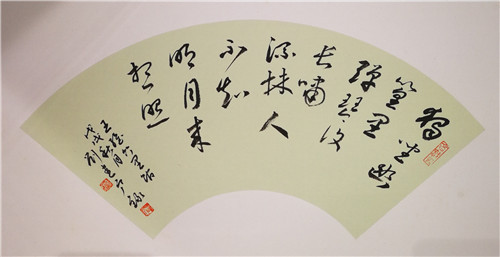 獨坐幽
篁里
弹琴復
长啸
深林人
不知
明月来
相照
王維竹里馆
戊戌秋月
刘